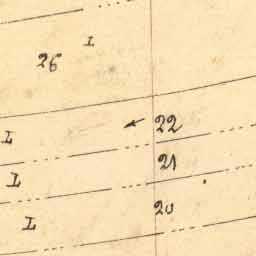 I
26
22
I
21
I
20
I